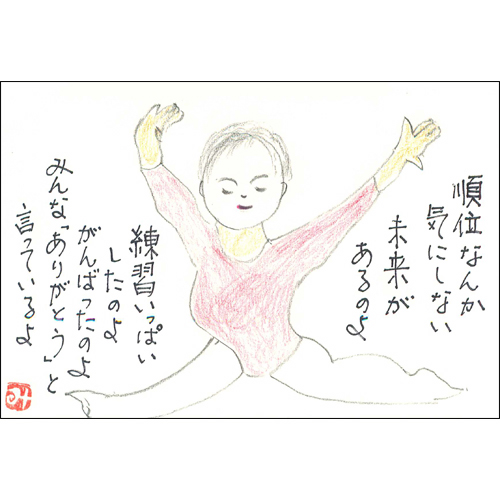 順位なんか
気にしない
未来が
あるのよ
練習いっぱい
したのよ
がんばったのよ
みんな「ありがとう」と
言っているよ
み